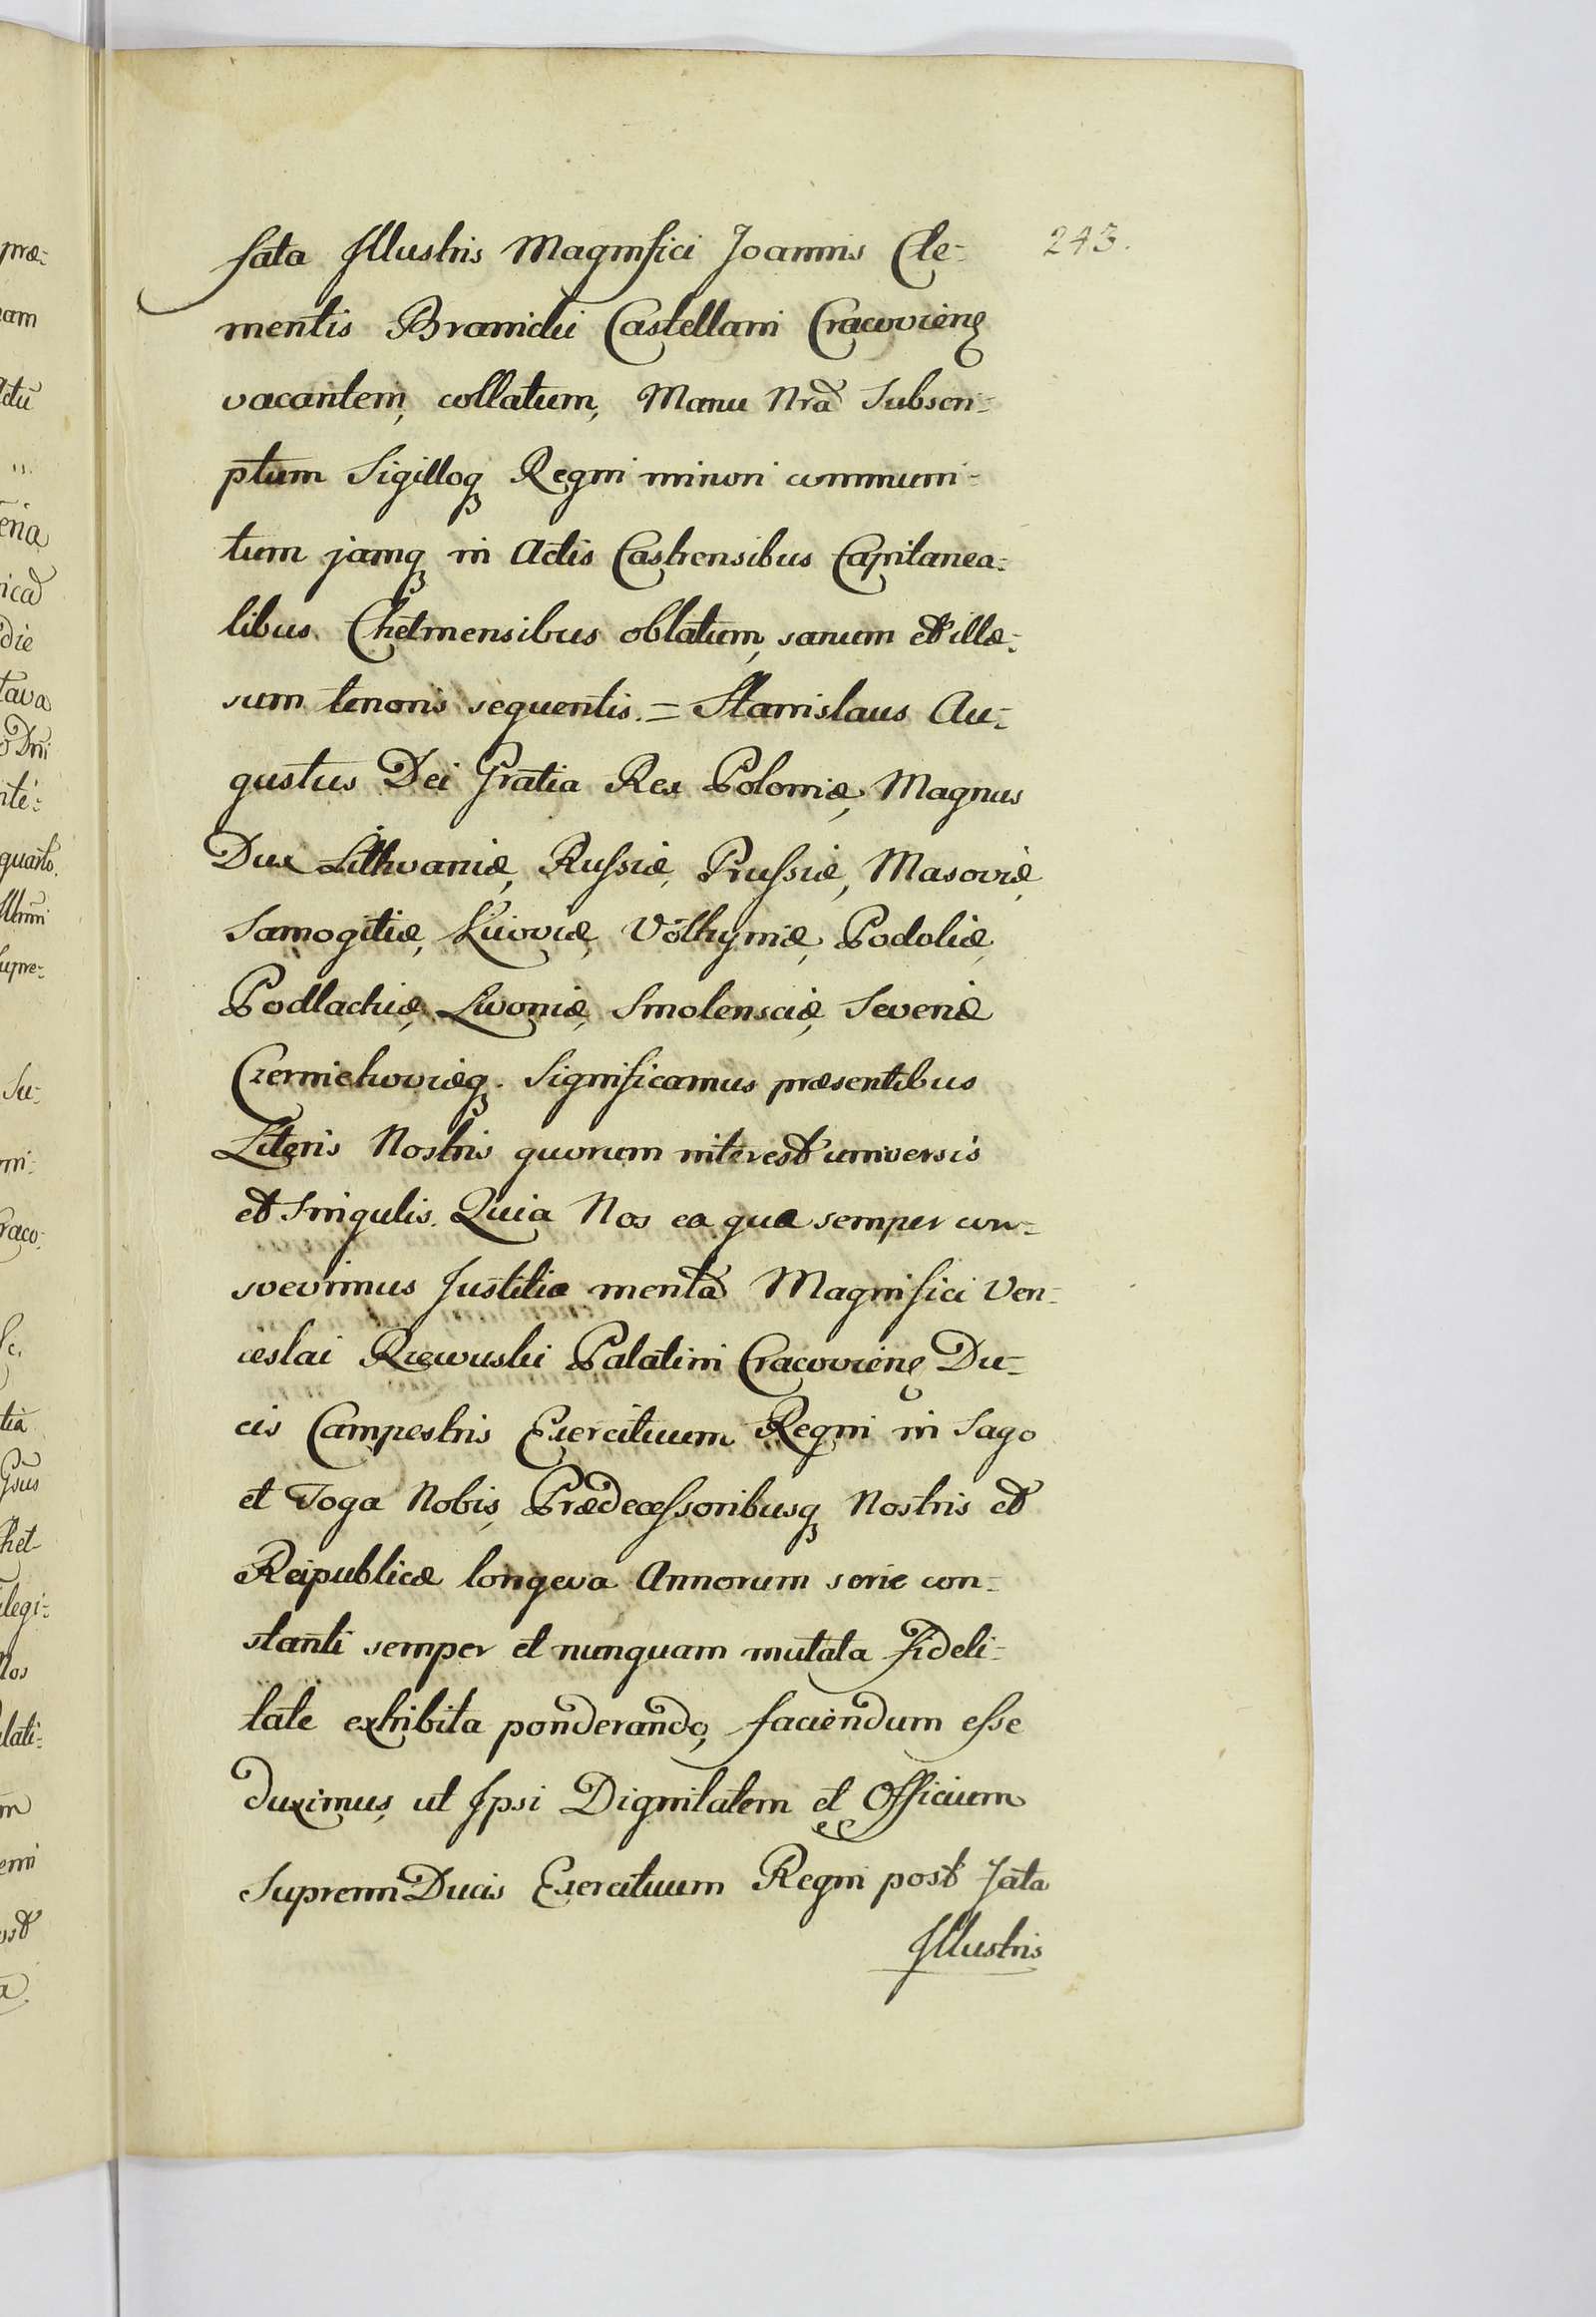 243.
fata Illustris Magnifici Joannis Cle-
mentis Branicki Castellani Cracovien̄
vacantem, collatum, Manu Nrā Subscri-
ptum Sigilloq Regni minori communi-
tum jamq in Actis Castrensibus Capitanea-
libus Chełmensibus oblatum, sanum et illæ-
sum tenoris sequentis. = Stanislaus Au-
gustus Dei Gratia Rex Poloniæ, Magnus
Dux Lithvaniæ, Russiæ, Prussiæ, Masoviæ,
Samogitiæ, Kiioviæ, Volhyniæ, Podoliæ,
Podlachiæ, Livoniæ, Smolensciæ, Severiæ
Czerniehoviæq. Significamus præsentibus
Literis Nostris quorum interest universis
et Singulis. Quia Nos ea qua semper con-
svevimus Justitia merita Magnifici Ven-
ceslai Rzewuski Palatini Cracovien̄ Du-
cis Campestris Exercituum Regni in Sago
et Toga Nobis, Prædecessoribusq Nostris et
Reipublicæ longeva Annorum serie con-
stanti semper et nunquam mutata Fideli-
tate exhibita ponderando, faciendum esse
duximus, ut Ipsi Dignitatem et Officium
Supremi Ducis Exercituum Regni post fata
Illustris